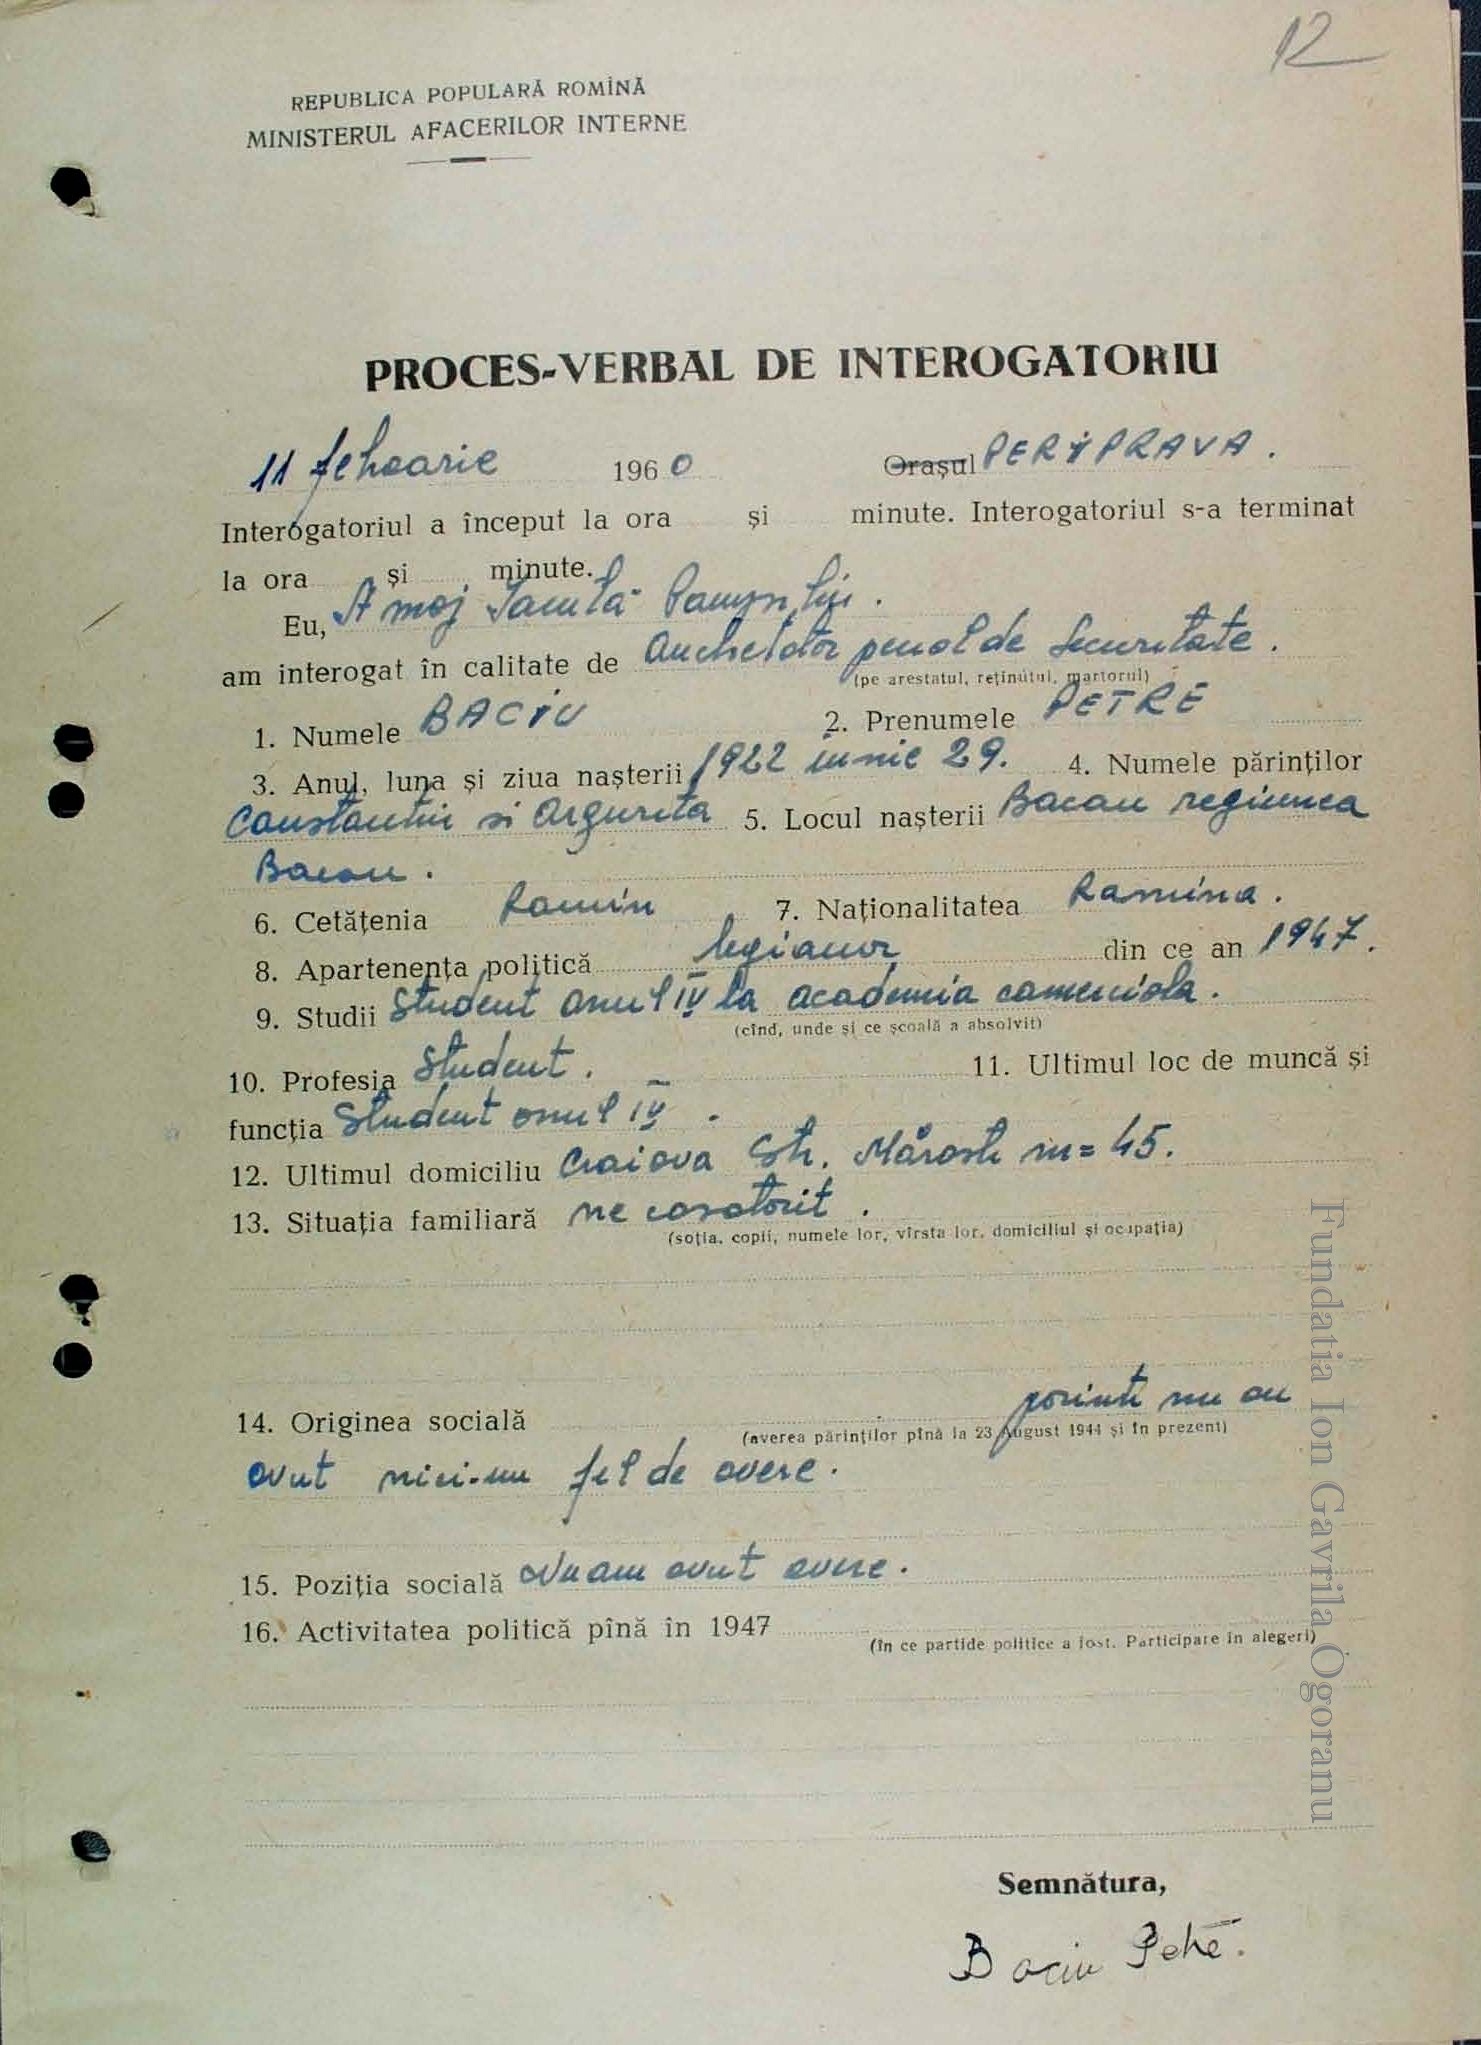 12
REPUBLICA POPULARĂ ROMÎNĂ
MINISTERUL AFACERILOR INTERNE
PROCES-VERBAL DE INTEROGATORIU
11 februarie 1960 Orașul PERIPRAVA.
Interogatoriul a început la ora și minute. Interogatoriul s-a terminat
la ora și minute.
Eu,
am interogat în calitate de Anchetator penal de Securitate.
(pe arestatul, reținutul, martorul)
1. Numele BACIU 2. Prenumele PETRE
3. Anul, luna și ziua nașterii 1922 iunie 29. 4. Numele părinților
Constantin si Argurita 5. Locul nașterii Bacau regiunea
Bacau.
6. Cetățenia Romin 7. Naționalitatea Romina.
8. Apartenența politică legionar din ce an 1947.
9. Studii Student anul IV la academia comerciala.
(cînd, unde și ce școală a absolvit)
10. Profesia Student. 11. Ultimul loc de muncă și
funcția Student anul IV.
12. Ultimul domiciliu Craiova Str. Mărasti nr= 45.
13. Situația familiară necasatorit.
(soția, copii, numele lor, vîrsta lor, domiciliul și ocupația)
14. Originea socială parinti nu au
(averea părinților pînă la 23 August 1944 și în prezent)
avut nici-un fel de avere.
15. Poziția socială Nu am avut avere.
16. Activitatea politică pînă în 1947
(în ce partide politice a fost. Participare în alegeri)
Semnătura,
Baciu Petre.
Fundatia Ion Gavrila Ogoranu